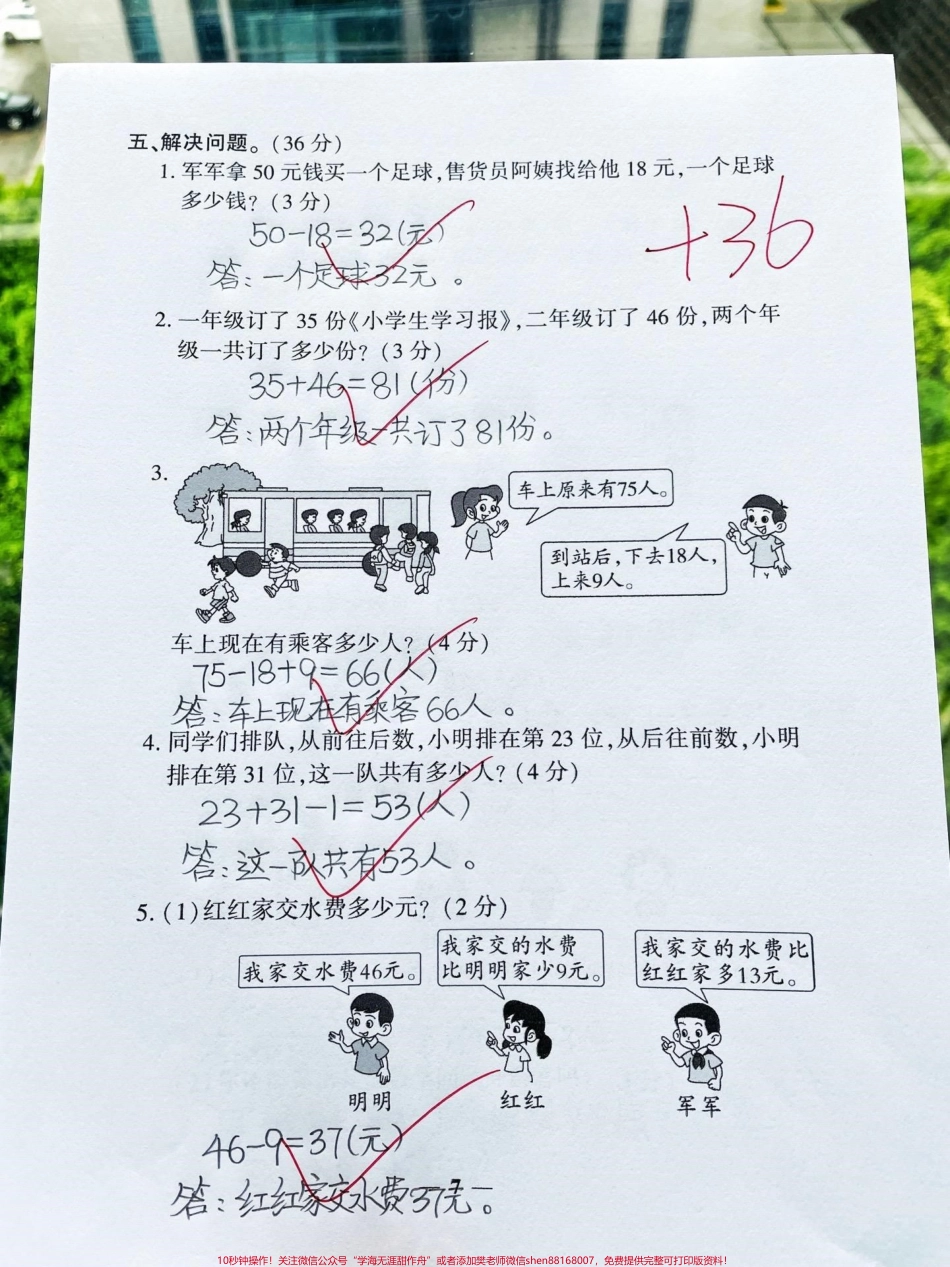 五、解决问题。(36 分)
1. 军军拿 50 元钱买一个足球,售货员阿姨找给他 18 元,一个足球
多少钱? (3 分)
+36
50-18=32(元)
答:一个足球32元。
2. 一年级订了 35 份《小学生学习报》,二年级订了 46 份,两个年
级一共订了多少份? (3 分)
35+46=81(份)
答:两个年级一共订了81份。
3.
车上原来有75人。
到站后,下去18人,
上来9人。
车上现在有乘客多少人? (4 分)
75-18+9=66(人)
答:车上现在有乘客66人。
4. 同学们排队,从前往后数,小明排在第 23 位,从后往前数,小明
排在第 31 位,这一队共有多少人? (4 分)
23+31-1=53(人)
答:这一队共有53人。
5. (1)红红家交水费多少元? (2 分)
我家交水费46元。
我家交的水费
比明明家少9元。
我家交的水费比
红红家多13元。
明明
红红
军军
46-9=37(元)
答:红红家交水费37元。
— 7 —
10秒钟操作!关注微信公众号“学海无涯甜作舟”或者添加樊老师微信shen88168007,免费提供完整可打印版资料!